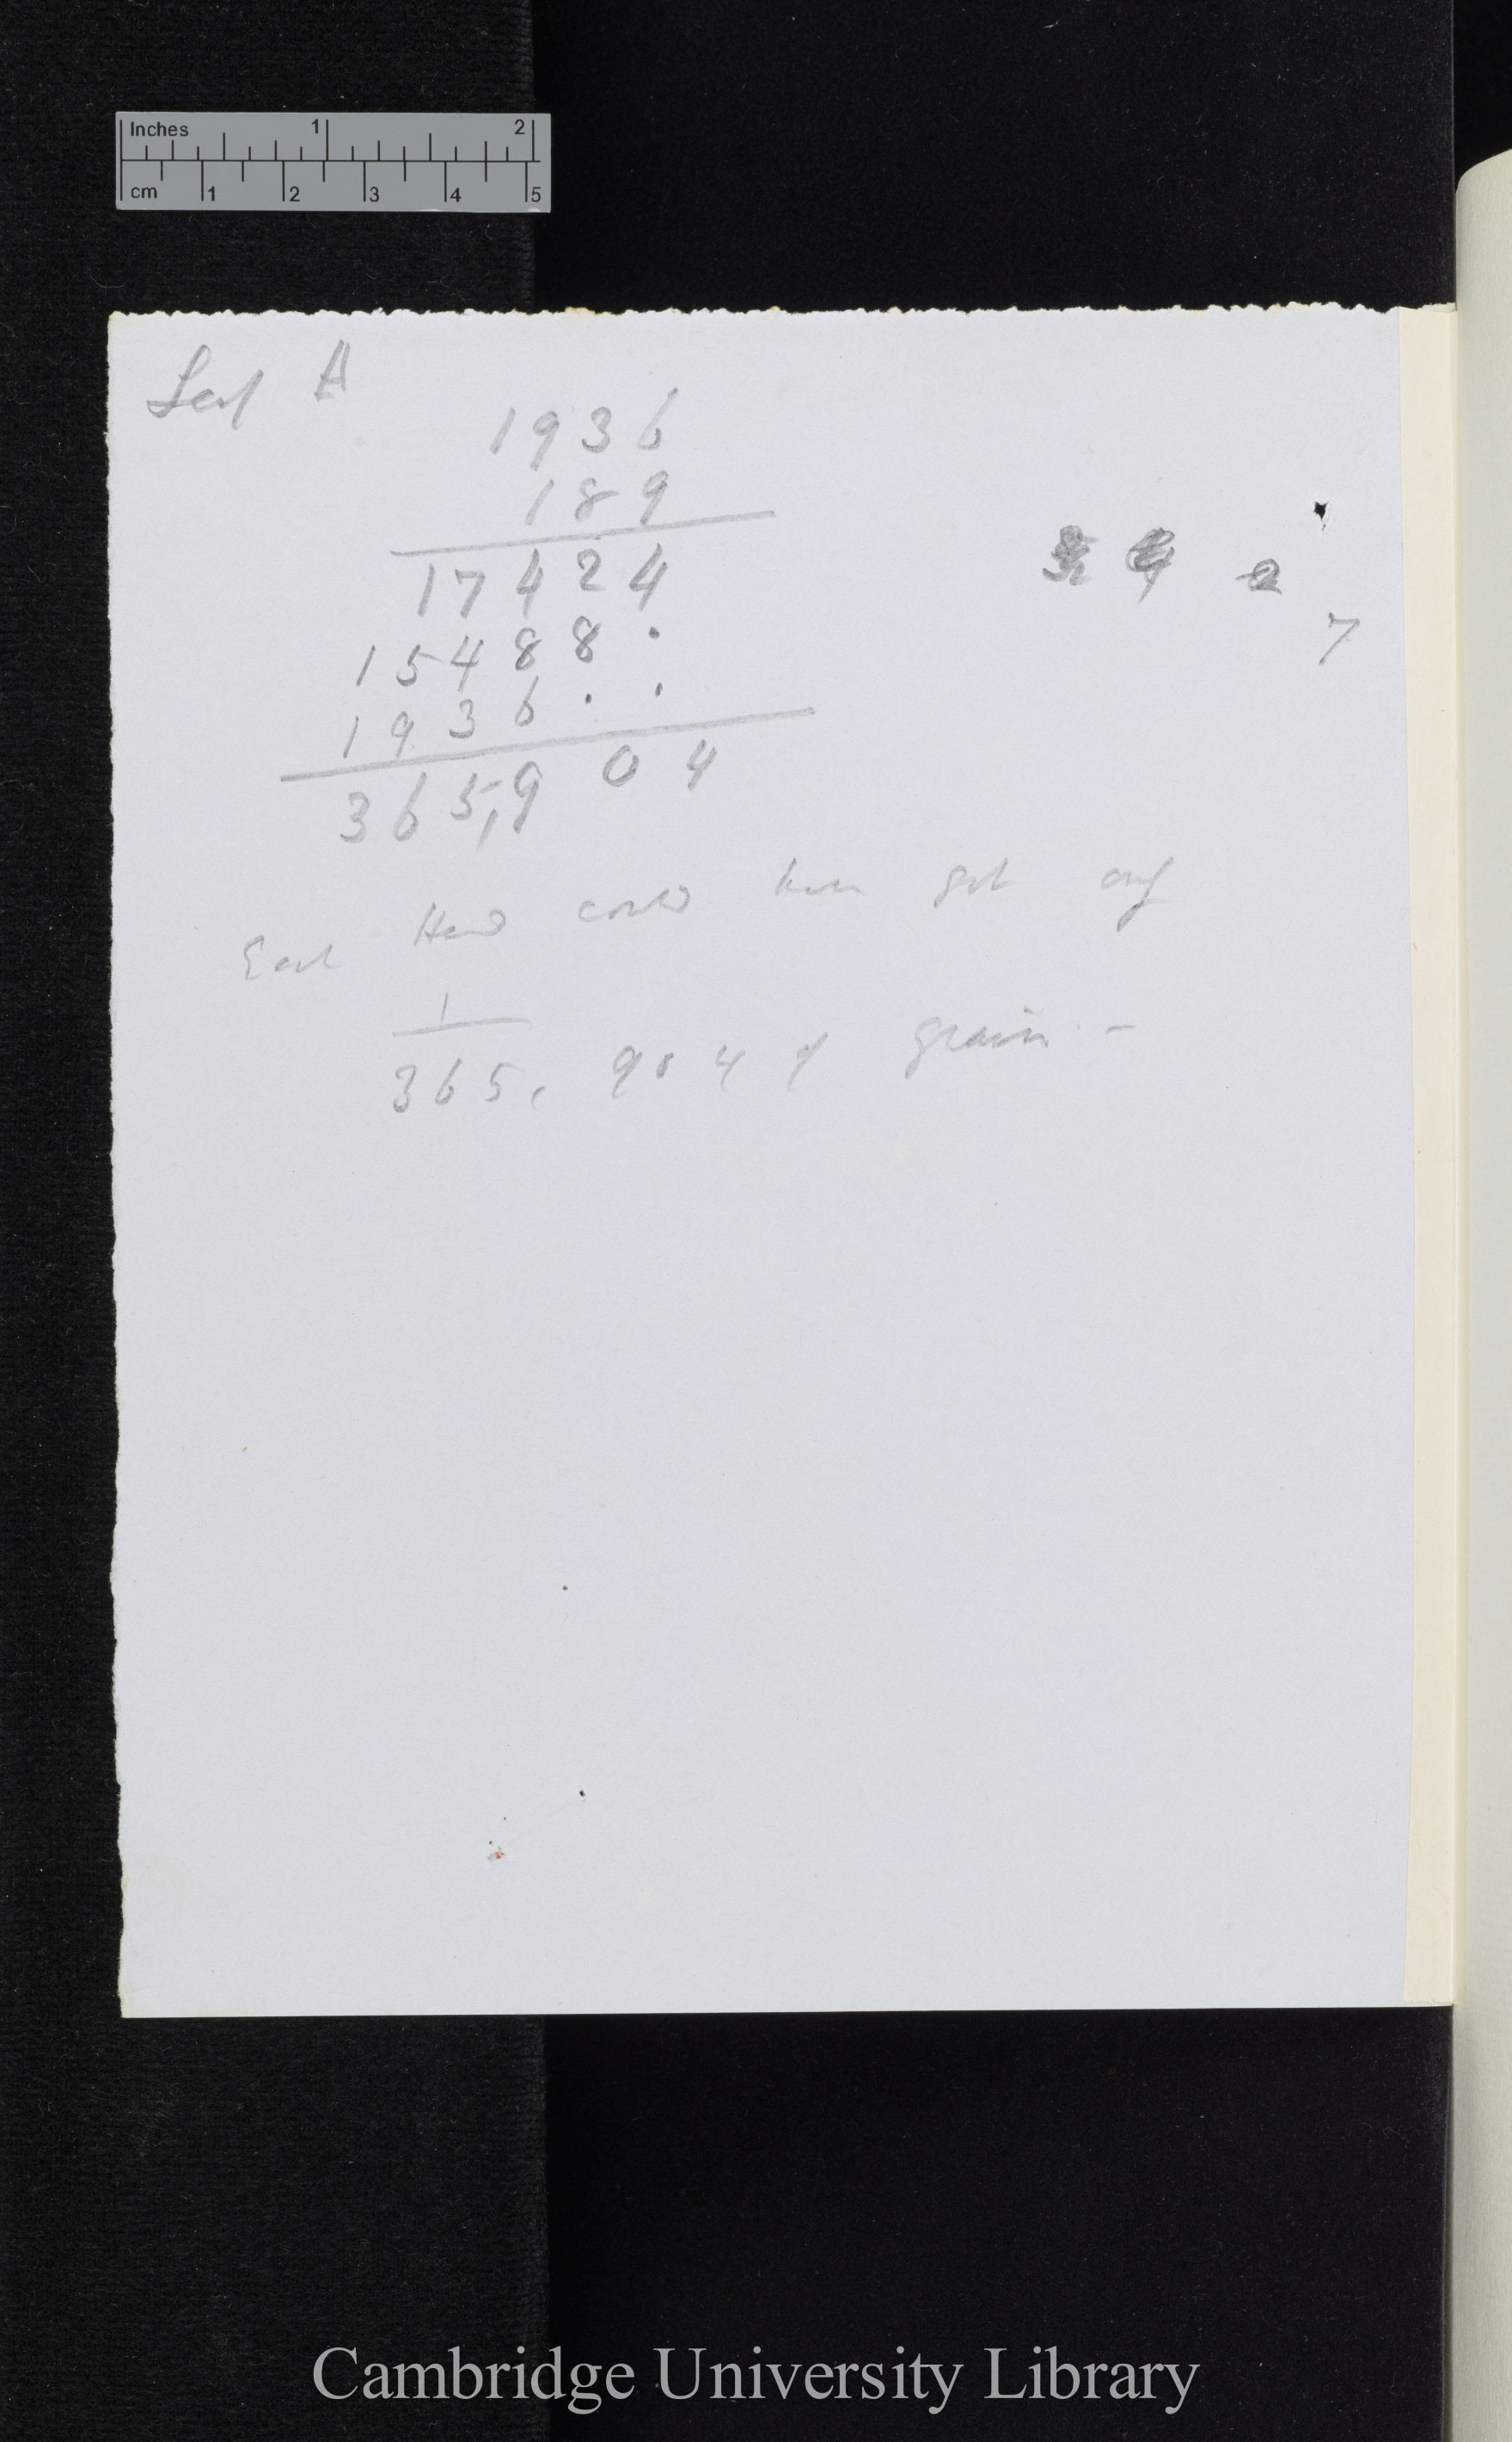 Inches 1 2
cm 1 2 3 4 5
Leaf A
1936
189
17424
15488 .
1936 . .
365,904
7
Each Head could have got only
1
365,904 of grain. —
Cambridge University Library